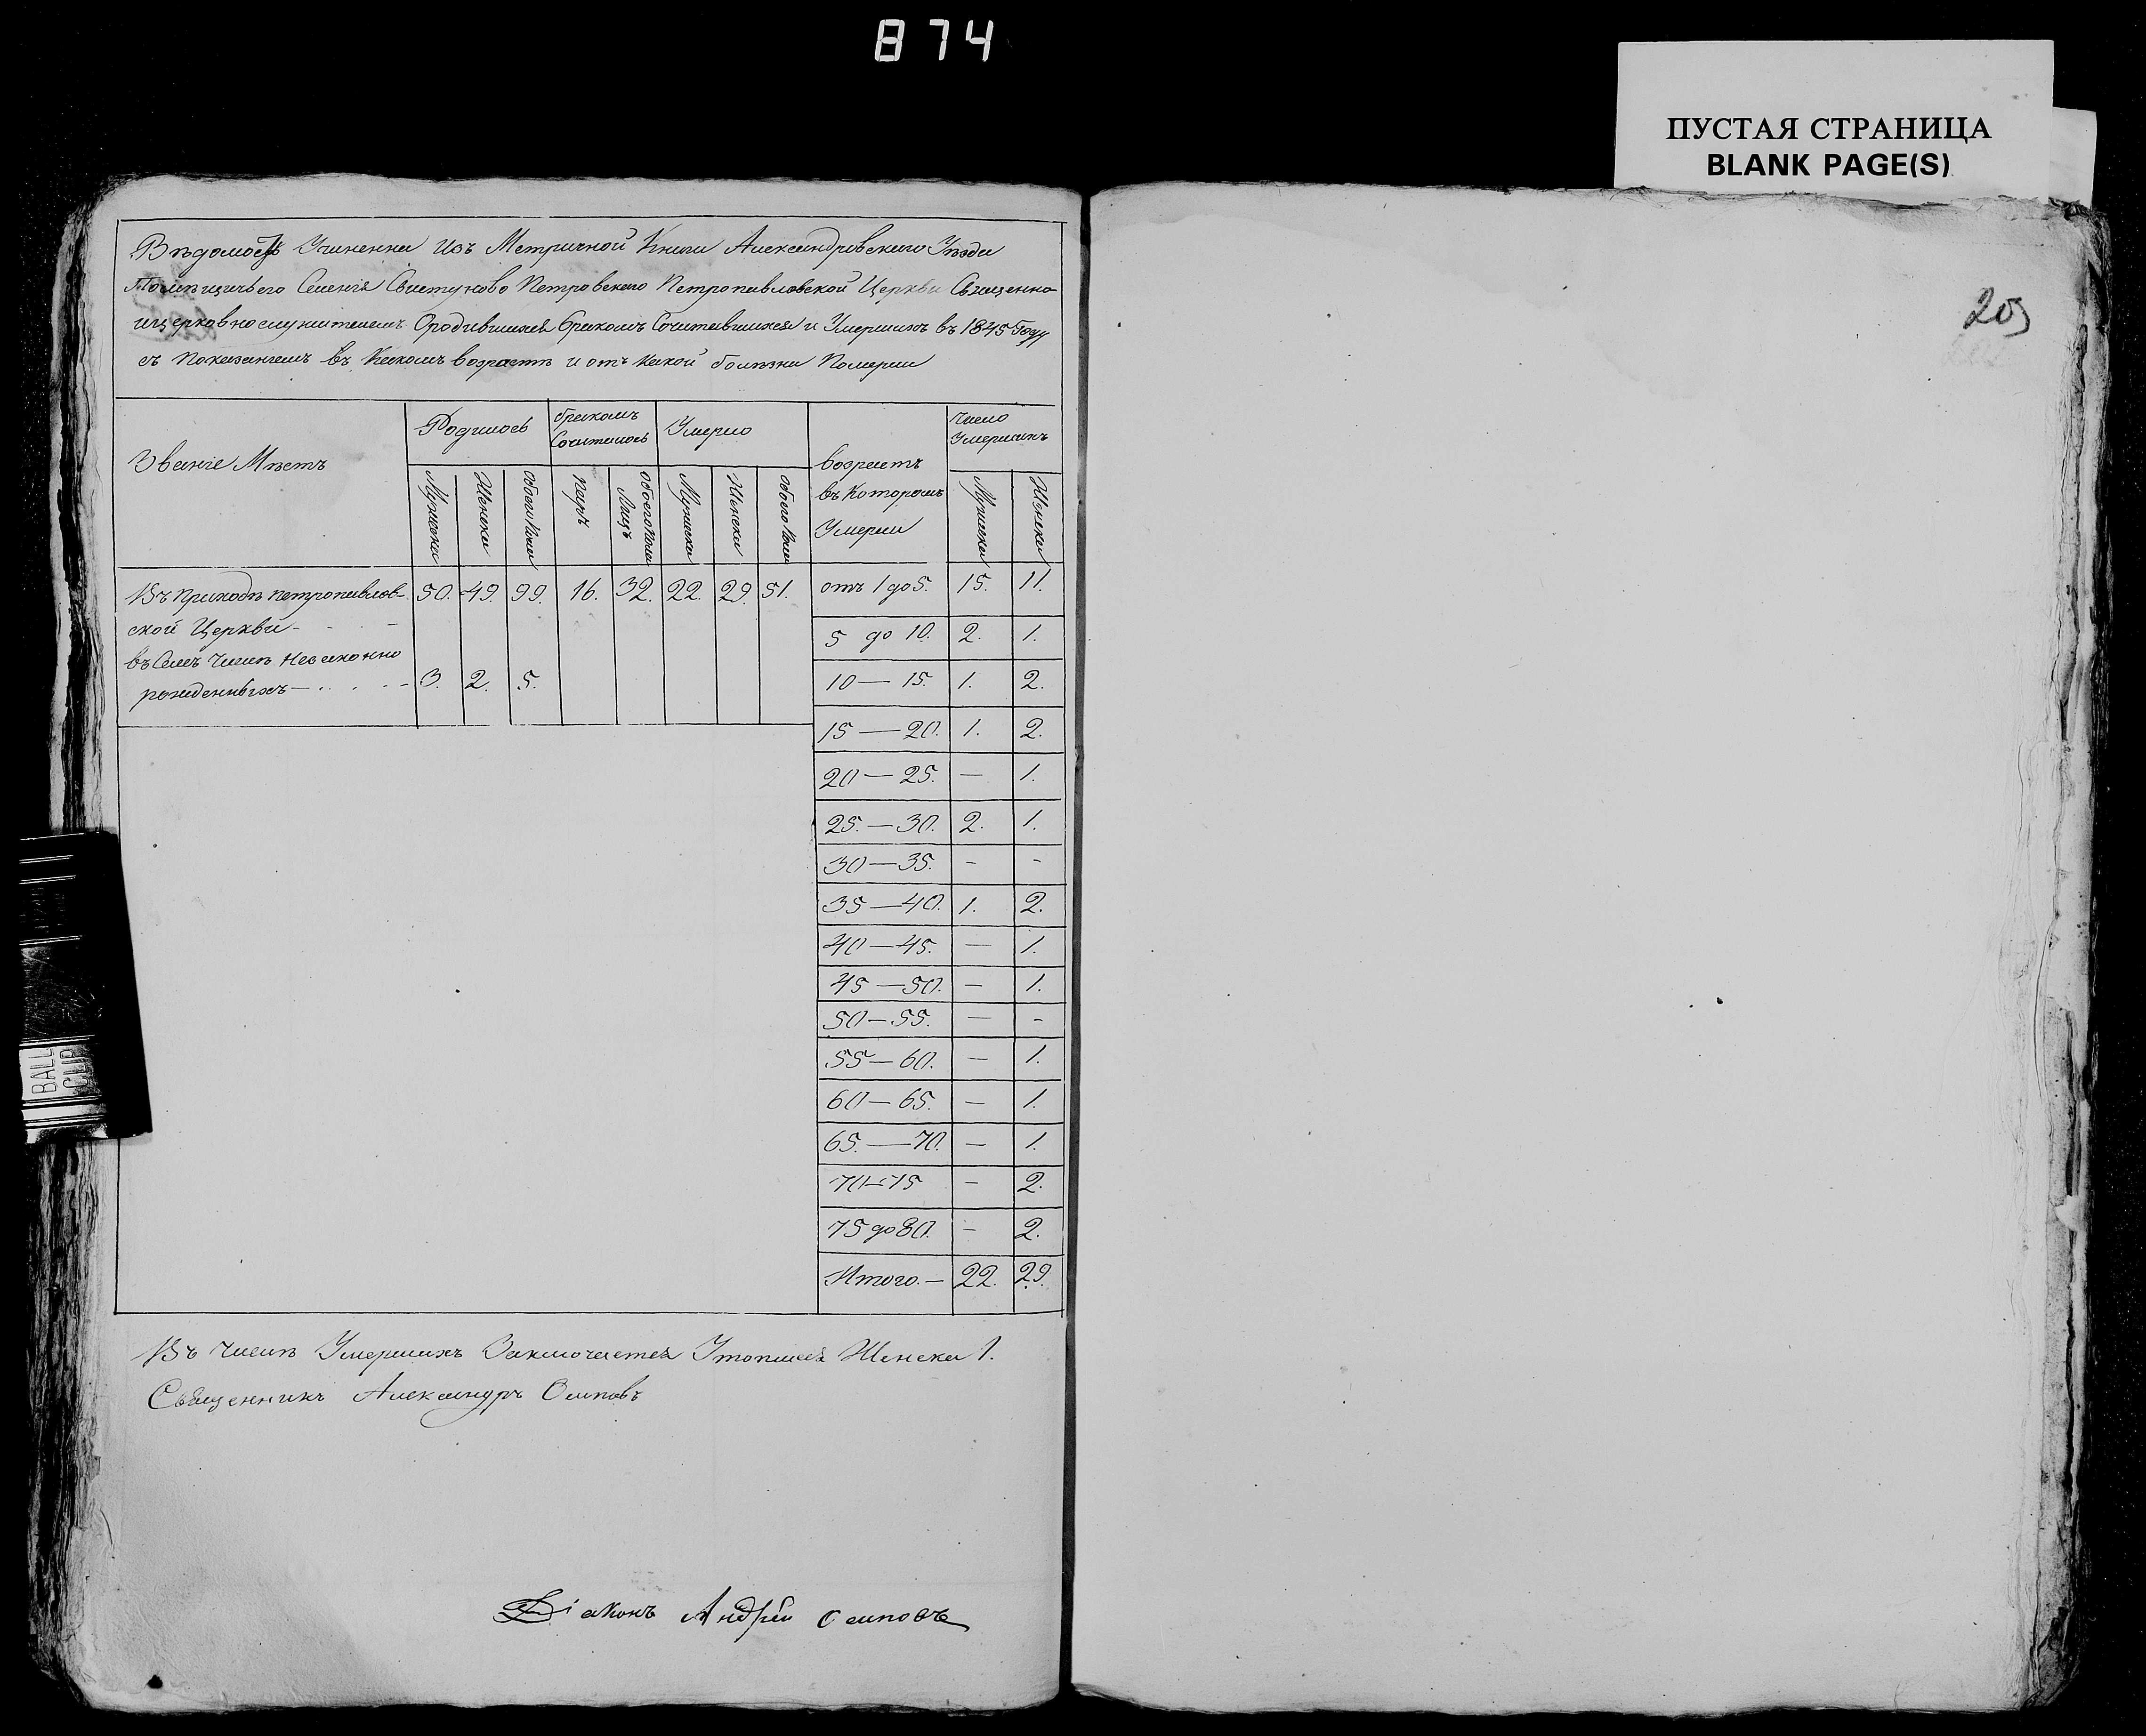 874
ПУСТАЯ СТРАНИЦА
BLANK PAGE(S)
203
Вѣдомость Учиненна Изъ Метричной Книги Александровскаго Уѣзда
Помѣщичьего Селенія Свистуново Петровскаго Петропавловской Церкви Священно
ицерковнослужителемъ Ородившихся бракомъ Сочитавшихся и Умершихъ въ 1845 Году
съ Показаніемъ въ Какомъ возрастѣ и отъ какой болѣзни Померли
Званіе Мѣстъ
Родилось
бракомъ Сочиталось
Умерло
возрастъ въ Которомъ Умерли
Число Умершихъ
Мужеска Женска Обоего Пола Паръ Обоего Пола Лицъ Мужеска Женска Обоего Пола Мужеска Женска
Въ Приходѣ петропавлов- 50. 49. 99. 16. 32. 22. 29. 51. отъ 1 до 5. 15. 11.
ской Церкви - - -
5 до 10. 2. 1.
въ Семъ Числѣ Незаконно
рожденныхъ — . . . . - 3. 2. 5.
10 — 15. 1. 2.
15 — 20. 1. 2.
20 — 25. — 1.
25. — 30. 2. 1.
30 — 35. - -
35 — 40. 1. 2.
40 — 45. — 1.
45 — 50. — 1.
50 — 55. — -
55 — 60. — 1.
60 — 65. — 1.
65. — 70. — 1.
70 — 75 - 2.
75 до 80. - 2.
Итого. — 22. 29.
Въ Числѣ Умершихъ Заключается Утопшая Женска 1.
Священникъ Александръ Осиповъ
Діаконъ Андрей Осиповъ
BALL
CLIP